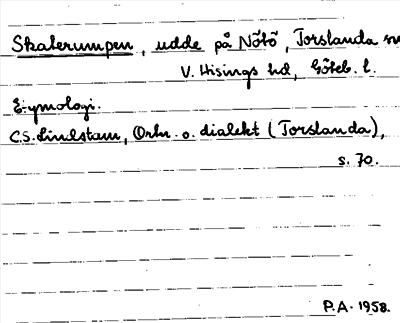 Skaterumpen, udde på Nötö, Torslanda sn
V. Hisings hd, Göteb. l.
Etymologi.
C.S. Lindstam, Ortn. o. dialekt (Torslanda),
s. 70.
P.A. 1958.